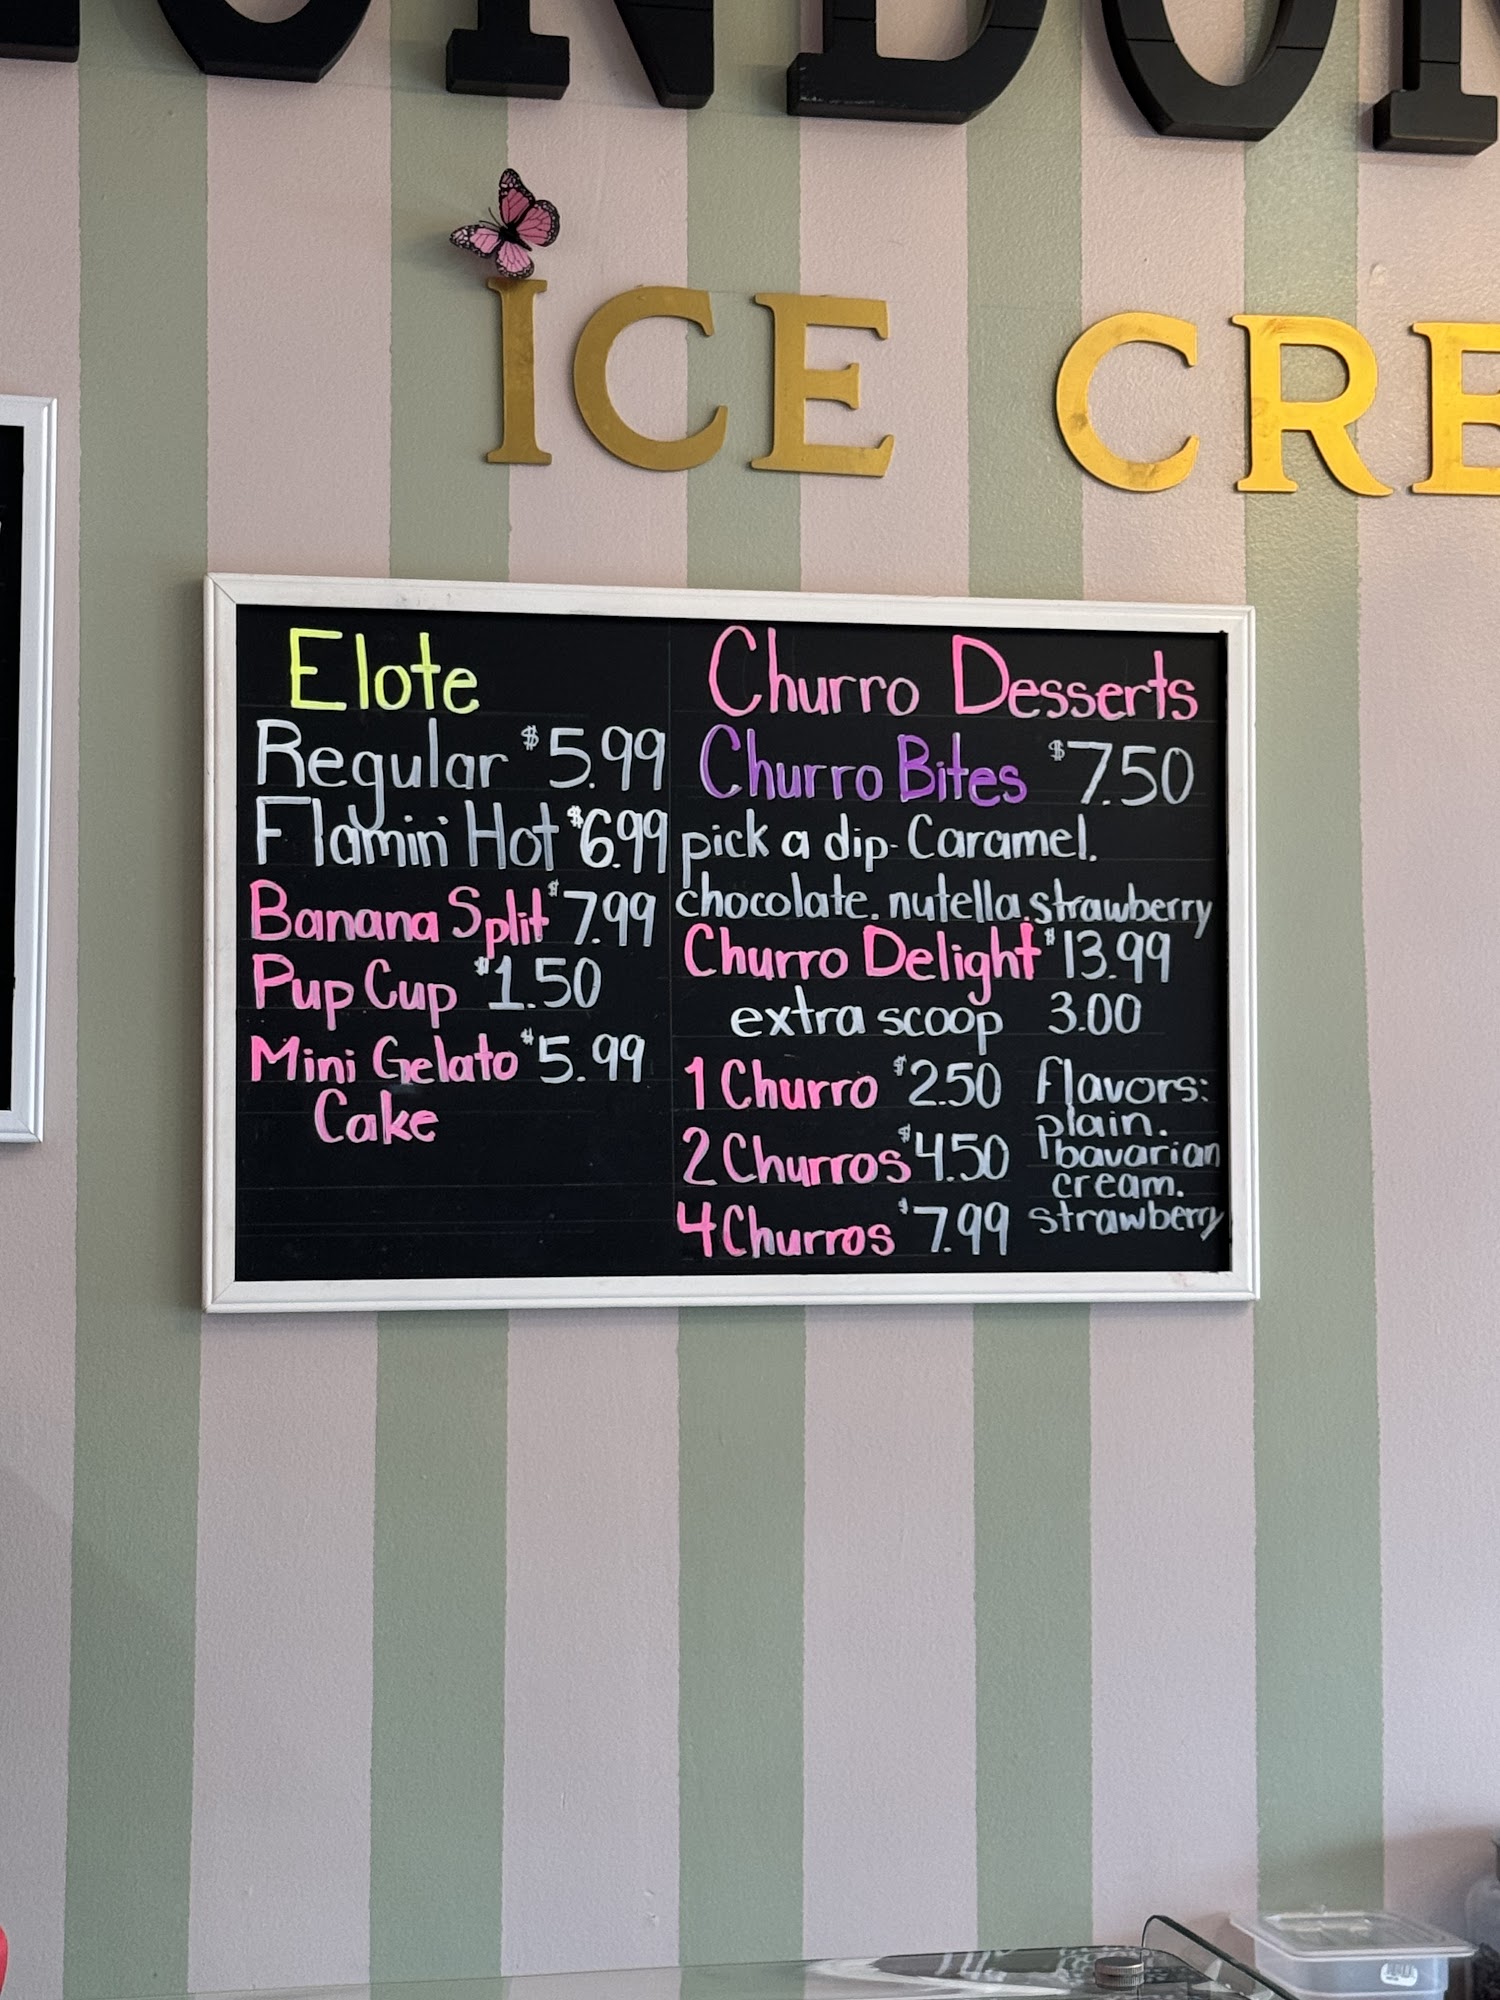 ICE
Elote
Regular $5.99
Flamin' Hot $6.99
Banana Split $7.99
Pup Cup $1.50
Mini Gelato $5.99
Cake
Churro Desserts
Churro Bites $7.50
pick a dip- Caramel.
chocolate. nutella. strawberry
Churro Delight $13.99
extra scoop 3.00
1 Churro $2.50
2 Churros $4.50
4 Churros $7.99
flavors:
plain.
bavarian
cream.
strawberry